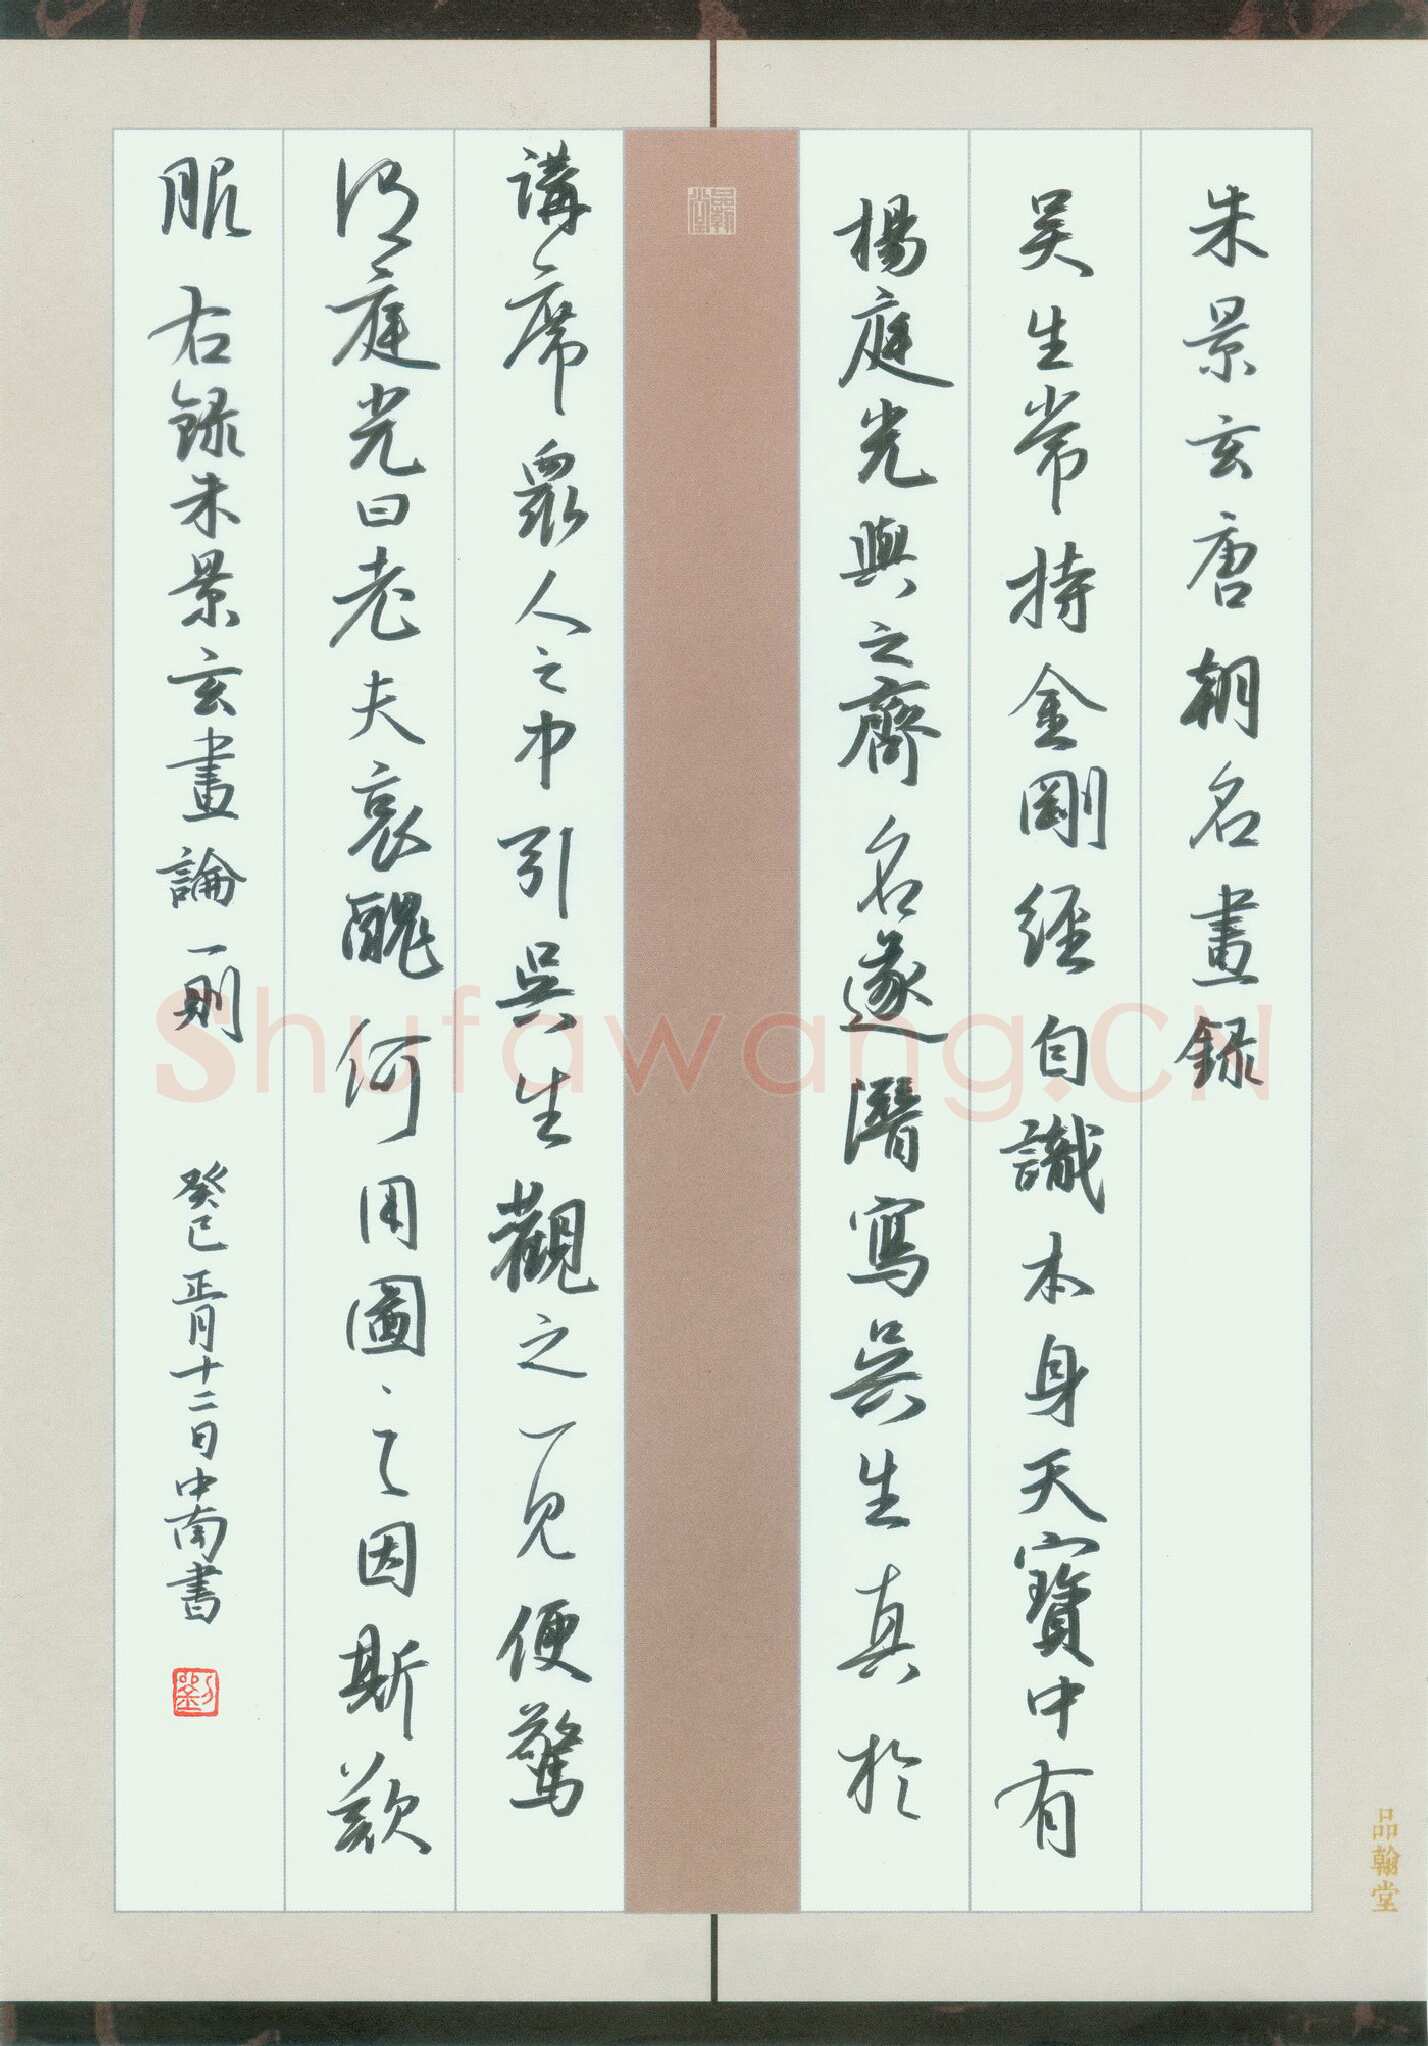 朱景玄唐朝名畫録
吴生常持金剛經自識本身天寶中有
楊庭光與之齊名遂潛寫吳生真於
講席眾人之中引吳生觀之一見便驚
謂庭光曰老夫衰醜何用圖之因斯歎
服 右録朱景玄畫論一則 癸巳正月十二日中南書
劉
品翰堂
品翰堂
Shufawang.CN